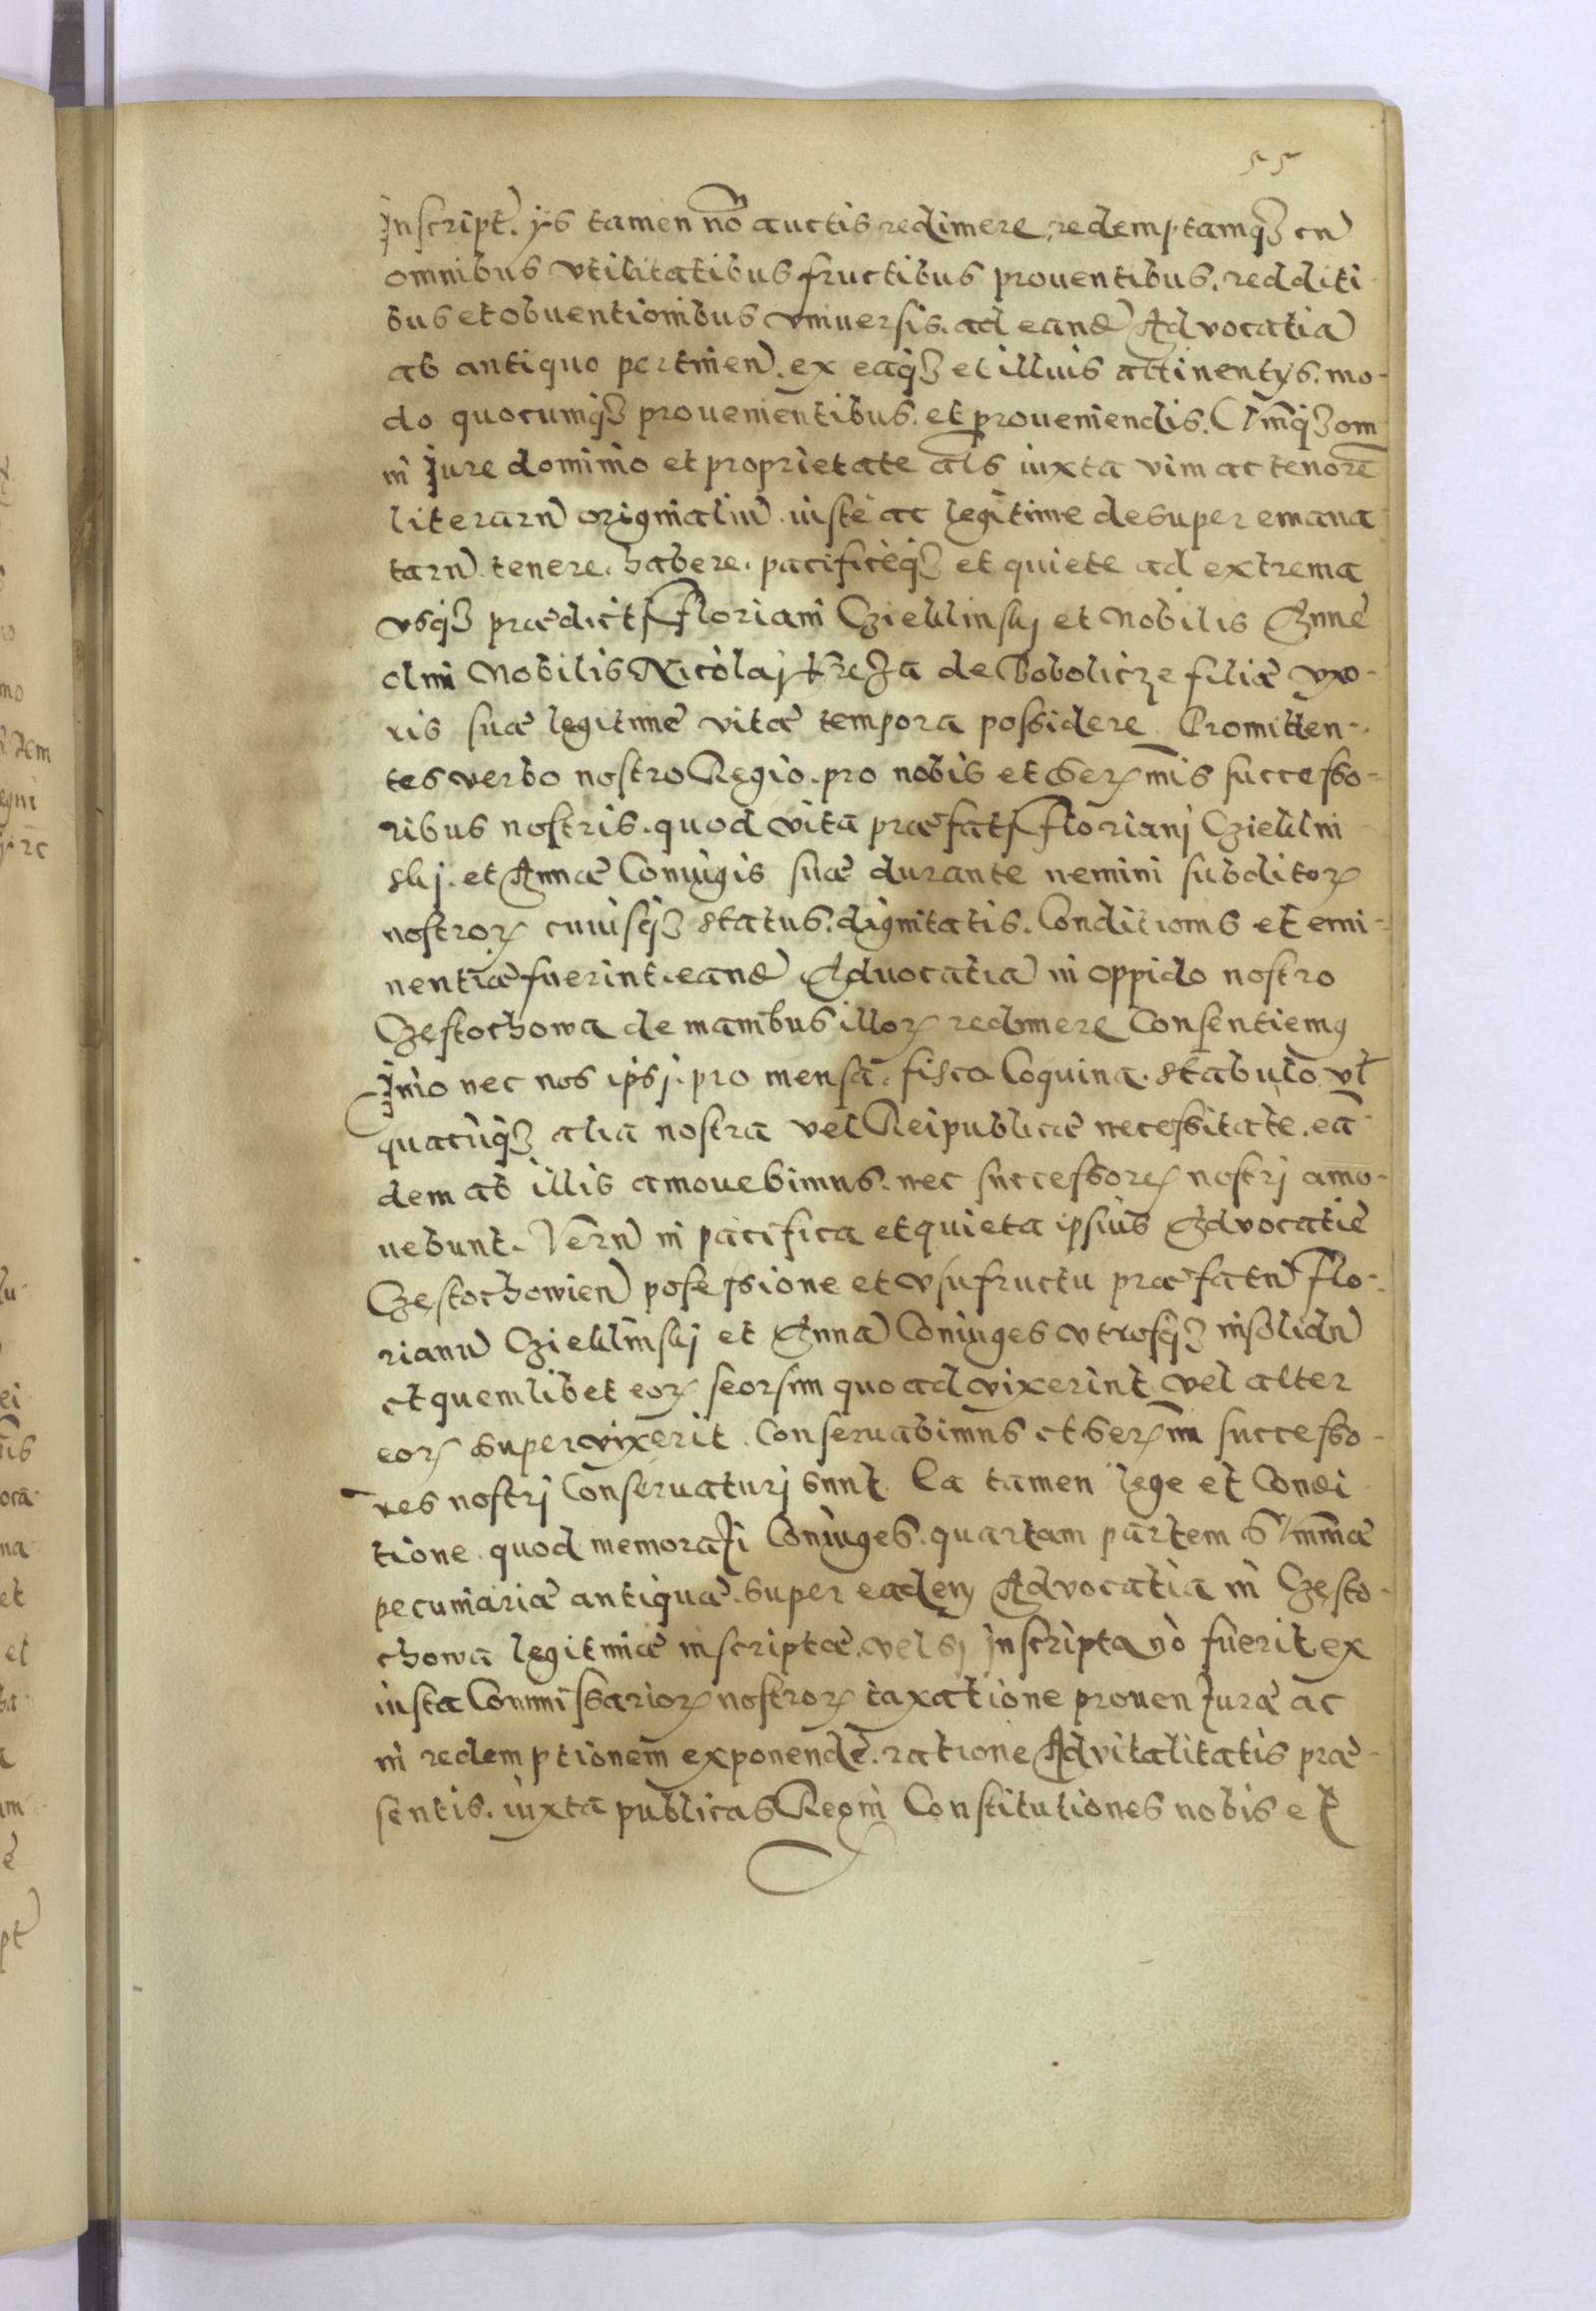 55
Inscript. ijs tamen nō auctis redimere, redemptamqȝ cū
omnibus vtilitatibus fructibus prouentibus. redditi-
bus et obuentionibus vniuersis. ad eandē Aduocatiā
ab antiquo pertinen. ex eaqȝ et illius attinentijs. mo-
do quocumqȝ prouenientibus. et proueniendis. Cūmqȝ om
ni Jure dominio et proprietate als̄ iuxta vim ac tenorē
literarū originaliū. iuste ac legitime desuper emana
tarū. tenere. habere. pacificeqȝ et quiete ad extrema
vsqȝ prædict Floriani Cziellinskj et Nobilis Annæ
olim Nobilis Nicolaj Kreza de Bobolicze filiæ vxo-
ris suæ legitimæ vitæ tempora possidere Promitten-
tes verbo nostro Regio. pro nobis et Serꝫ mīs successo-
ribus nostris. quod vita præfat Florianj Cziellin
skj. et Annæ Coniugis suæ durante nemini subditorꝫ
nostrorꝫ cuiusqȝ status. dignitatis. Conditionis et emi-
nentiæ fuerint. eandē Aduocatiā in oppido nostro
Czestochowa de manibus illorꝫ redimere Consentiemꝰ
Imo nec nos ipsj. pro mensa. fisco Coquina. stabulo vl̄
quacūqȝ alia nostra vel Reipublicæ necessitate. eā
dem ab illis amouebimus. nec successores nostrj amo-
uebunt. Verū in pacifica et quieta ipsius Aduocatiæ
Czestochowien possessione et vsufructu præfatū Flo-
rianū Cziellinskj et Annā Coniuges vtrosqȝ insolidū
et quemlibet eorꝫ seorsim quoad vixerint vel alter
eorꝫ supervixerit. Conseruabimus et Serꝫ mi successo-
res nostrj Conseruaturj sunt. Ea tamen lege et Condi
tione. quod memorati Coniuges. quartam partem Summæ
pecuniariæ antiquæ. super eadem Aduocatia in Czesto-
chowa legitimæ inscriptæ. vel sj Inscripta nō fuerit ex
iusta Commissariorꝫ nostrorꝫ taxatione prouenturæ ac
in redemptionem exponendæ. ratione Aduitalitatis præ-
sentis. iuxta publicas Regni Constitutiones nobis et